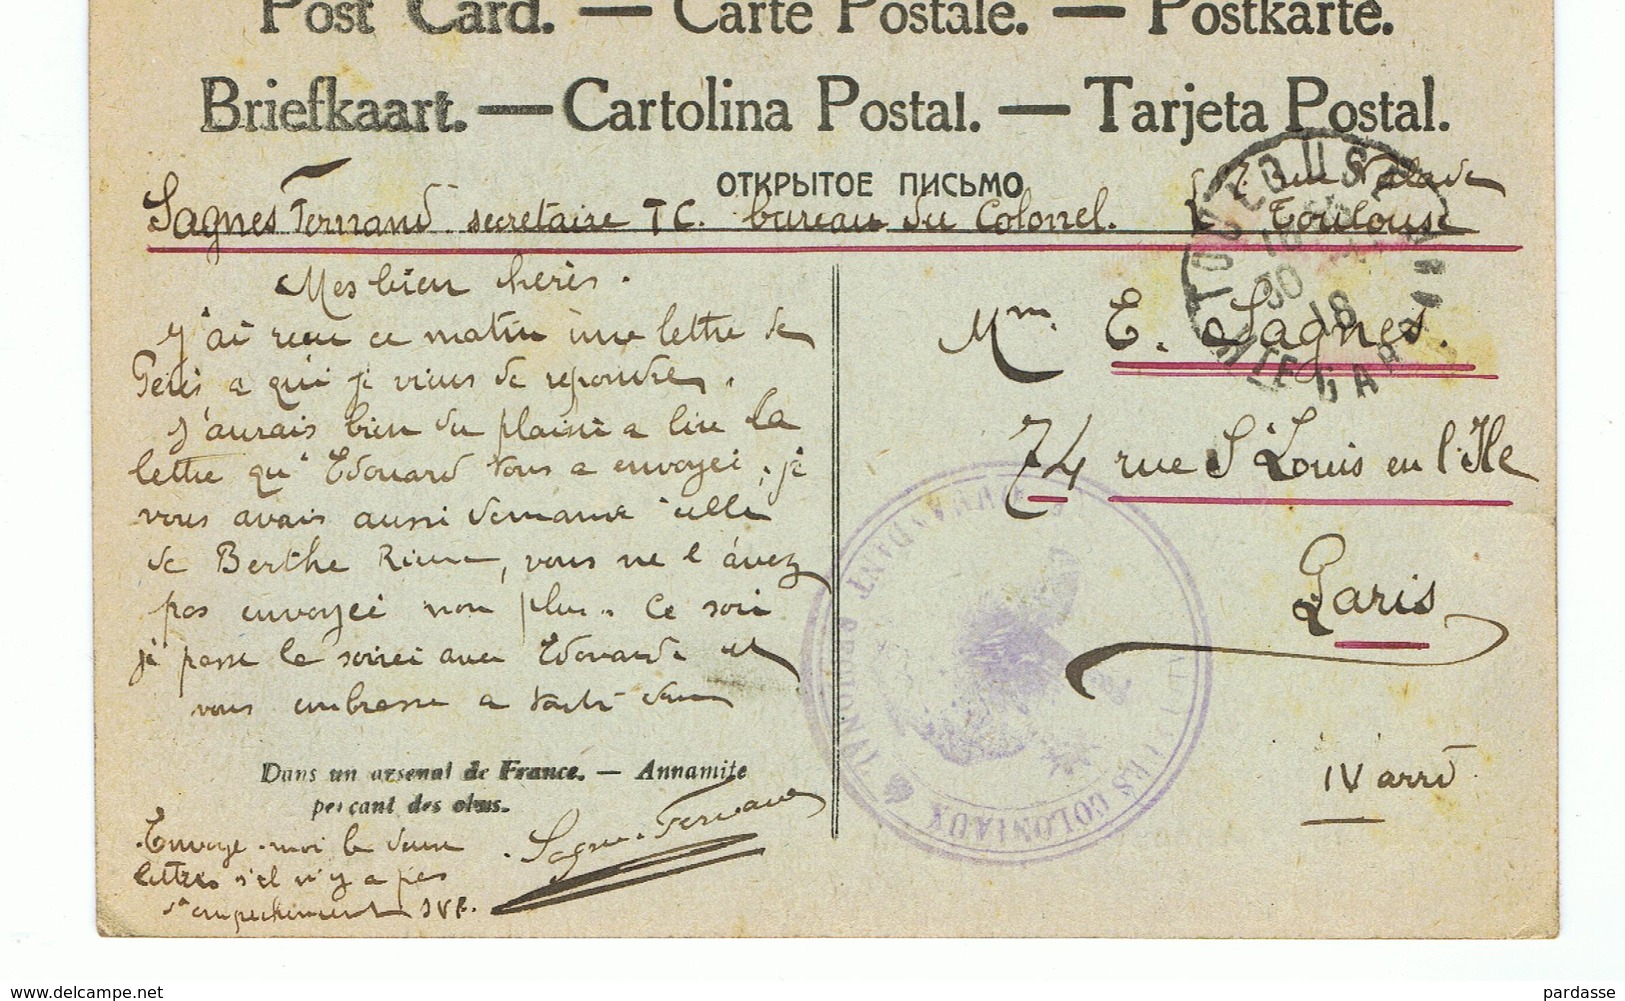 Post Card. — Carte Postale. — Postkarte.
Briefkaart. — Cartolina Postal. — Tarjeta Postal.
ОТКРЫТОЕ ПИСЬМО
Sagnes Fernand secretaire T C. bureau du Colonel. rue Valade
Toulouse
Mes bien cheres.
J'ai recu ce matin une lettre de
a qui je viens de repondre.
J'aurais bien du plaisir a lire la
lettre qu'Edouard vous a envoyei, je
vous avais aussi demande celle
de Berthe, vous ne l'avez
pas envoyei non plus. Ce soir
je passe la soirei avec Edouard et
vous embrasse a toutes deux
Dans un arsenal de France. — Annamite
perçant des obus.
Envoye-moi les deux
lettres s'il n'y a pas
d'empechement SVP.
Sagnes Fernand
Mme E. Sagnes.
74 rue St Louis en l'Ile
Paris
IV arrt
TOULOUSE
30
18
HTE GARONNE
COMMANDANT
COLONIAUX
www.delcampe.net
pardasse